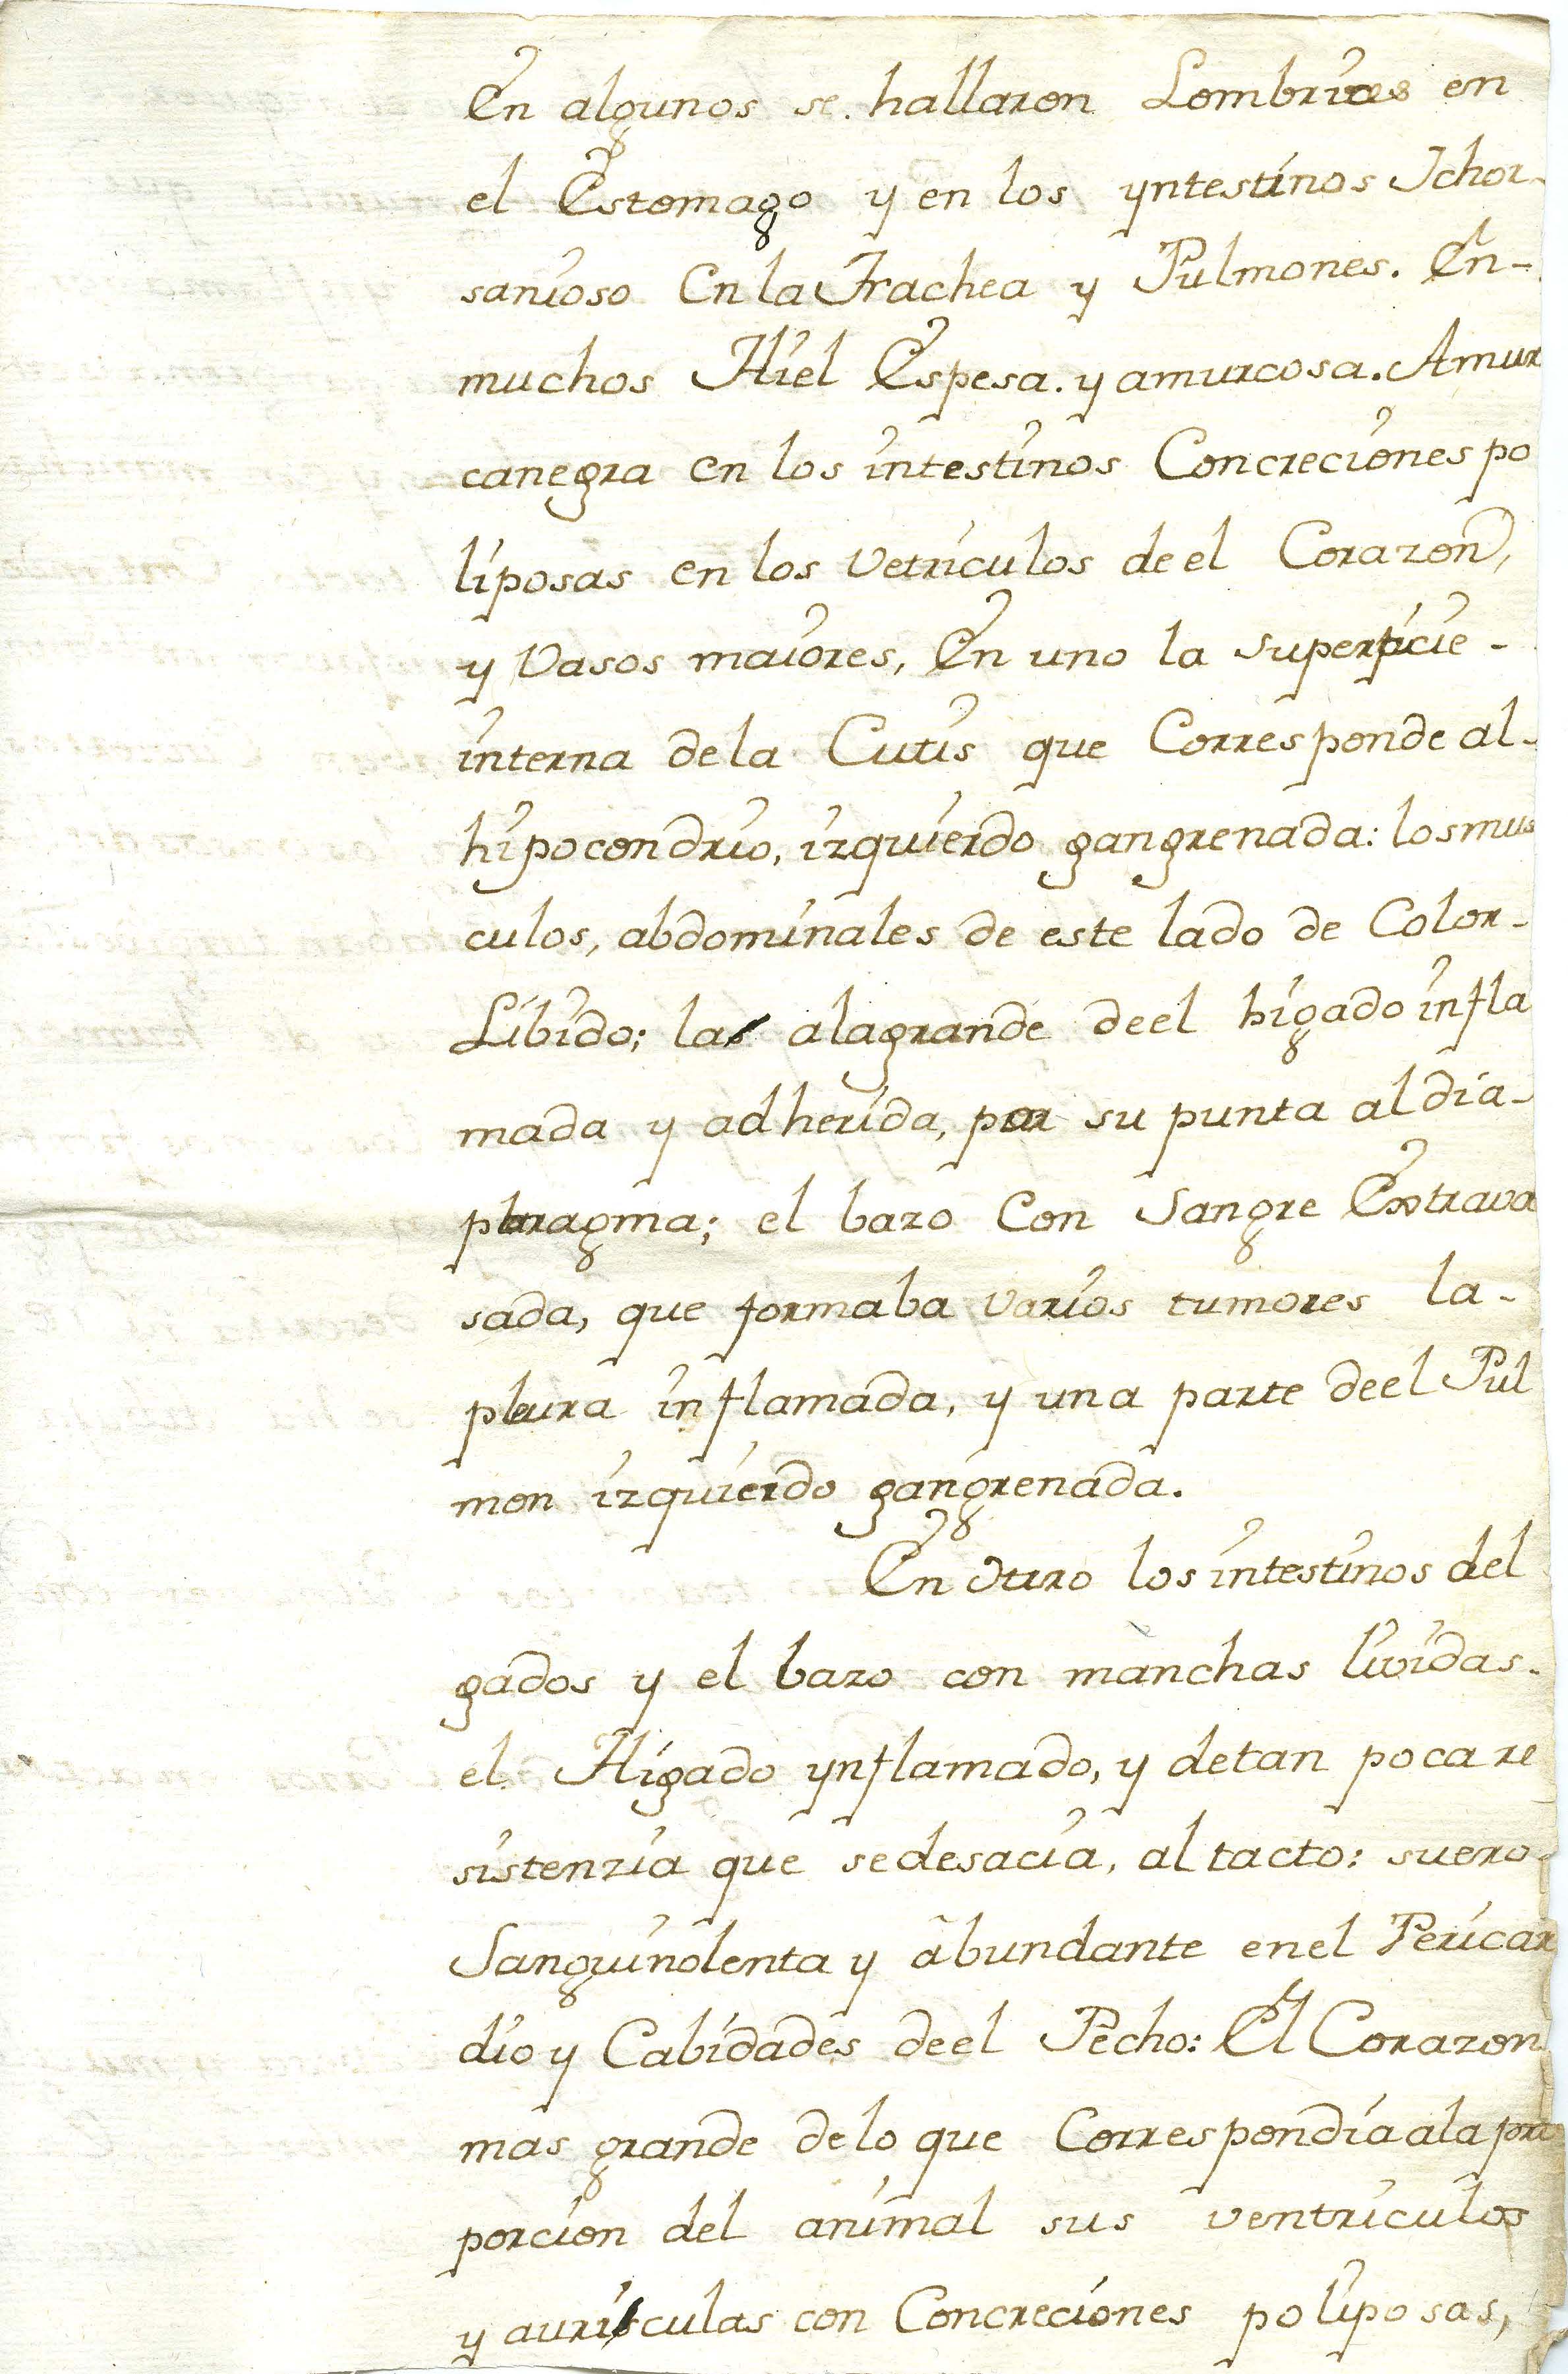 En algunos se. hallaron Lombrices en
el Estomago y en los yntestinos Ichor-
sanioso En la Trachea y Pulmones. En-
muchos Hiel Espesa. y amurcosa. Amur
canegra en los intestinos Concreciones po
liposas en los Vetriculos de el Corazon,
y Vasos maiores, En uno la superficie-
interna dela Cutis que Corresponde al-
hipocondrio, izquierdo gangrenada: los mus
culos, abdominales de este lado de Color-
Libido; la ala grande deel higado infla
mada y adherida, por su punta al dia-
phragma; el bazo Con Sangre Extrava
sada, que formaba varios tumores la-
pleura inflamada, y una parte deel Pul
mon izquierdo gangrenada.
En otro los intestinos del
gados y el bazo con manchas lividas.
el Higado ynflamado, y detan poca re
sistenzia que sedesacia, al tacto: suero-
Sanguinolenta y abundante enel Pericar
dio y Cabidades deel Pecho: El Corazon
mas grande delo que Correspondia ala pro
porcion del animal sus ventriculos
y auriculas con Concreciones poliposas,